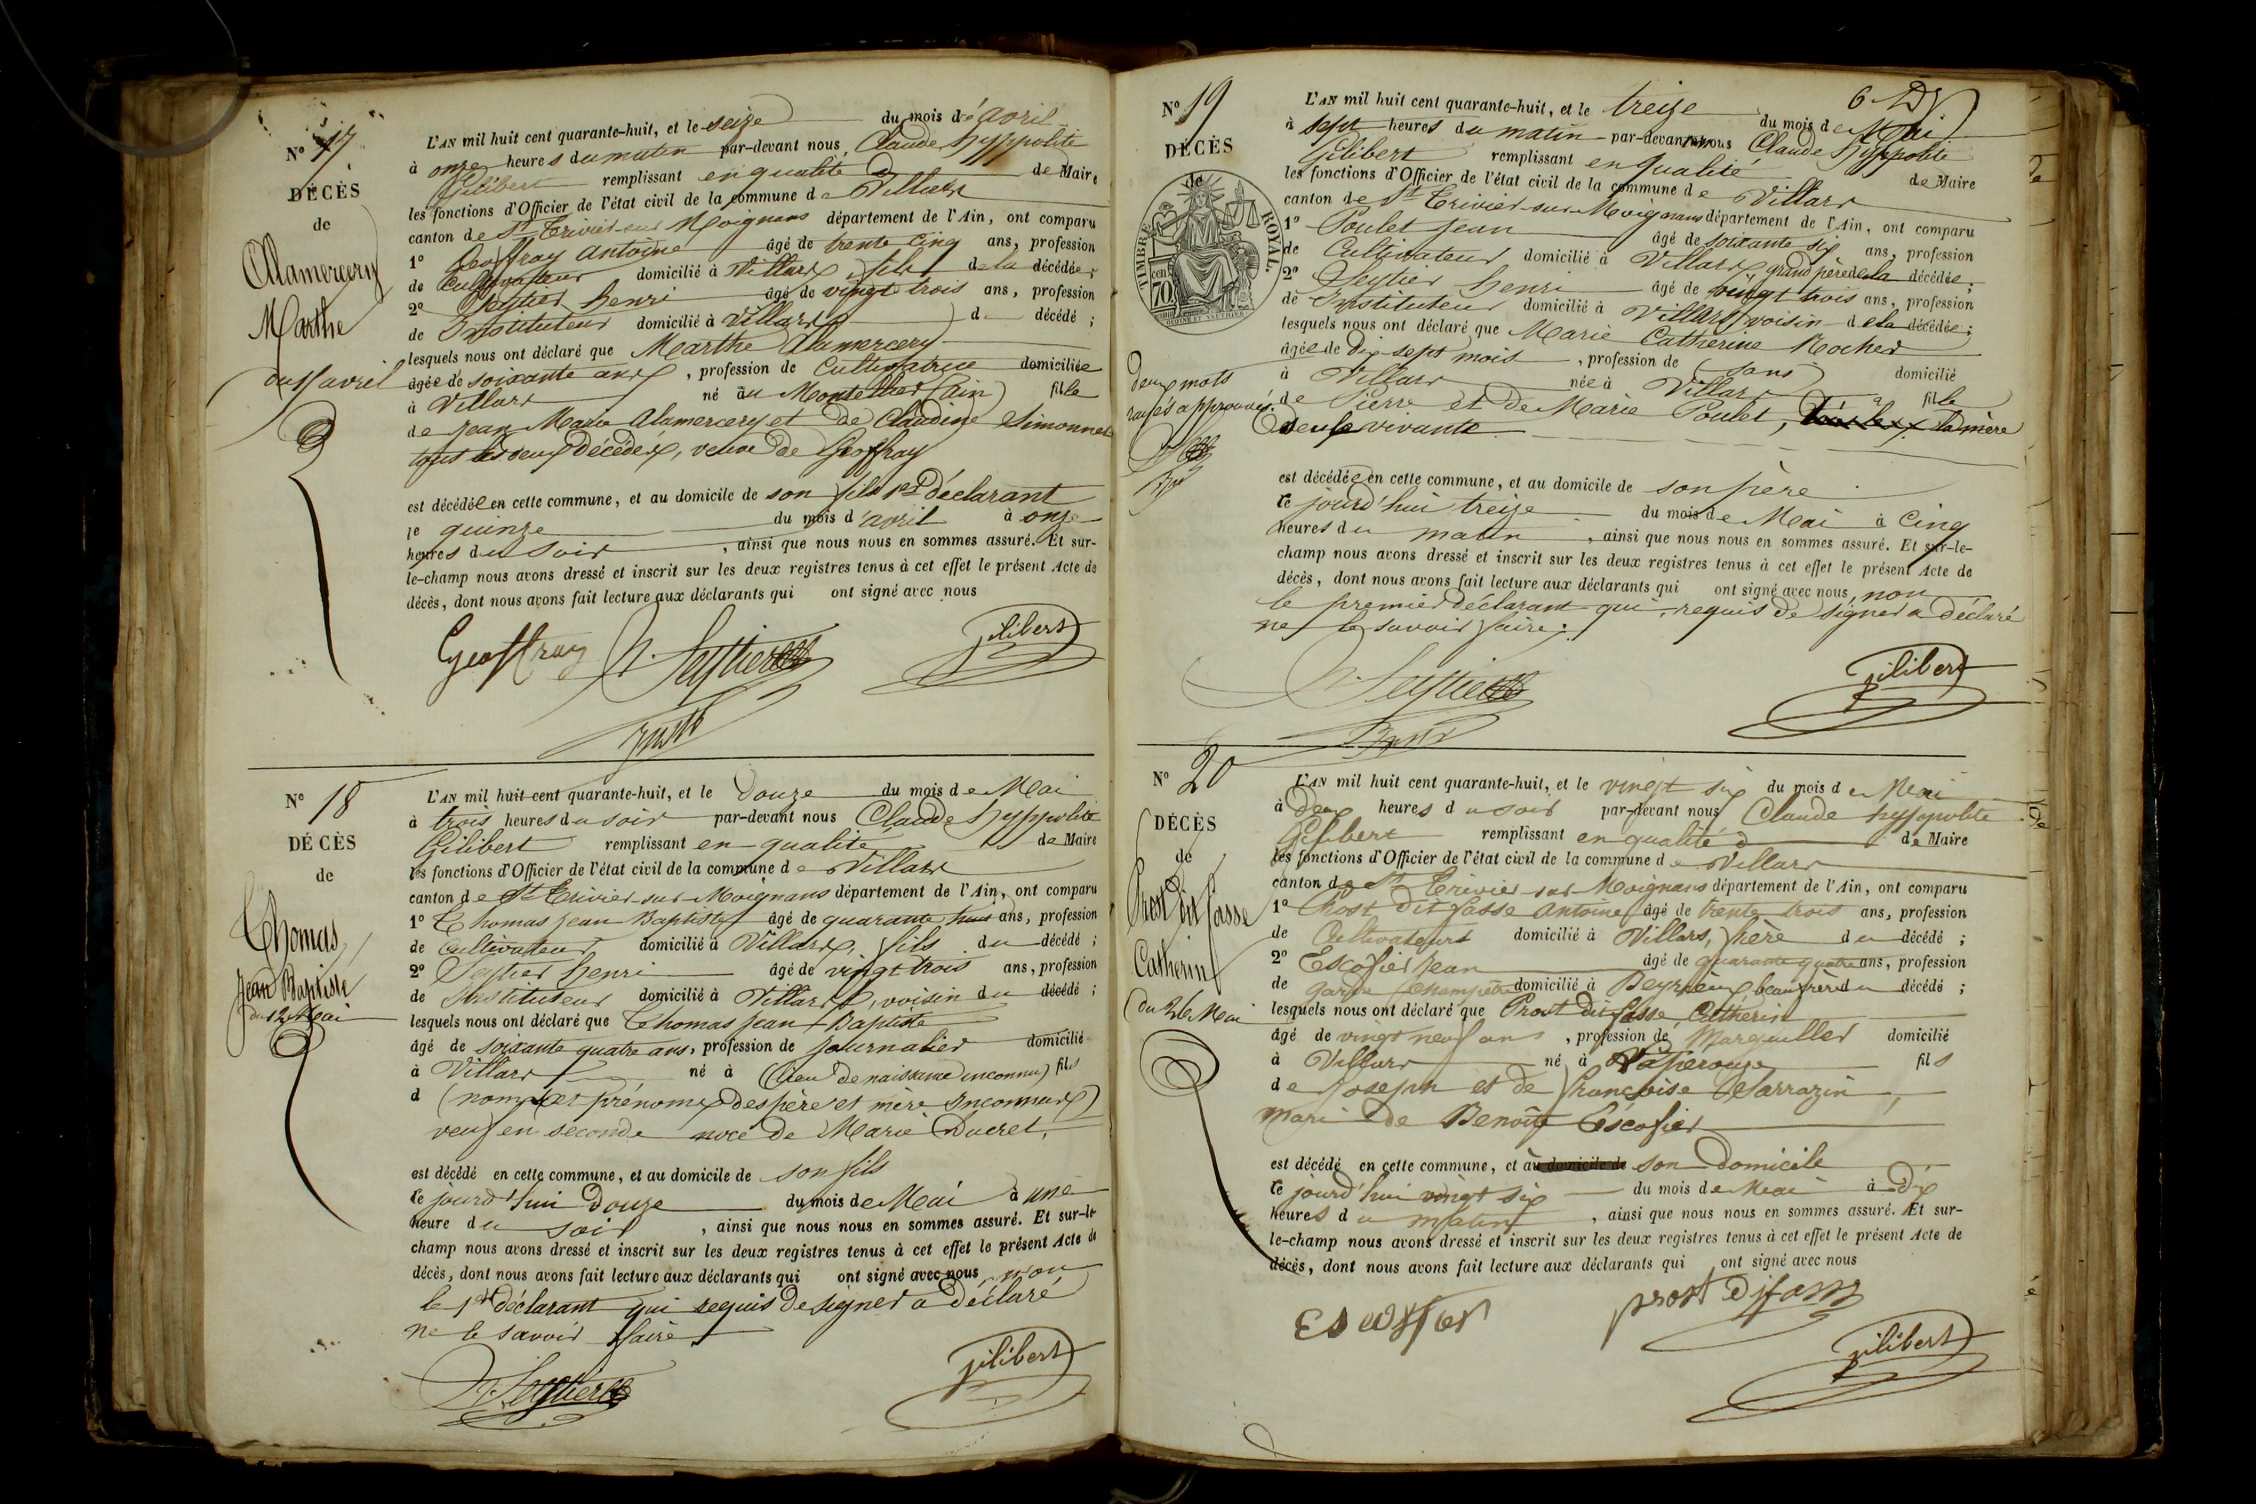 N° 17
DÉCÈS
de
Alamercery
Marthe
du 15 avril
L'AN mil huit cent quarante-huit, et le seize du mois d'avril
à onze heures du matin par-devant nous Claude Hyppolite
Gilibert remplissant en qualité de Maire
les fonctions d'Officier de l'état civil de la commune de Villars
canton de St Trivier-sur Moignans département de l'Ain, ont comparu
1° Geoffray Antoine âgé de trente cinq ans, profession
de Cultivateur domicilié à Villars, fils de la décédée;
2° Seytier henri âgé de vingt trois ans, profession
de Instituteur domicilié à Villars d décédé;
lesquels nous ont déclaré que Marthe Alamercery
âgée de soixante ans, profession de Cultivatrice domiciliée
à Villars né au Montellier (ain) fille
de Jean Marie Alamercery et de Claudine Simonnet
tous les deux décédés, veuve de Geoffray
est décédée en cette commune, et au domicile de son fils 1er déclarant
le quinze du mois d'avril à onze
heures du soir, ainsi que nous nous en sommes assuré. Et sur-
le-champ nous avons dressé et inscrit sur les deux registres tenus à cet effet le présent Acte de
décès, dont nous avons fait lecture aux déclarants qui ont signé avec nous
Geoffray h. Seytier gilibert
N° 18
DÉCÈS
de
Thomas
Jean Baptiste
du 12 Mai
L'AN mil huit cent quarante-huit, et le douze du mois de Mai
à trois heures du soir par-devant nous Claude hyppolite
Gilibert remplissant en qualité de Maire
les fonctions d'Officier de l'état civil de la commune de Villars
canton de St Trivier-sur Moignans département de l'Ain, ont comparu
1° Thomas Jean Baptiste âgé de quarante huit ans, profession
de Cultivateur domicilié à Villars, fils du décédé;
2° Seytier henri âgé de vingt trois ans, profession
de Instituteur domicilié à Villars, voisin du décédé;
lesquels nous ont déclaré que Thomas Jean Baptiste
âgé de soixante quatre ans, profession de journalier domicilié
à Villars né à (lieu de naissance inconnu) fils
d (noms et prénoms des père et mère inconnus)
veuf en seconde noce de Marie Ducret,
est décédé en cette commune, et au domicile de son fils
ce jourd'hui douze du mois de Mai à une
heure du soir, ainsi que nous nous en sommes assuré. Et sur-le
champ nous avons dressé et inscrit sur les deux registres tenus à cet effet le présent Acte de
décès, dont nous avons fait lecture aux déclarants qui ont signé avec nous, non
le 1er déclarant qui requis de signer a déclaré
ne le savoir faire
h. Seytier gilibert
6
N° 19
DÉCÈS
de
TIMBRE ROYAL
70 cen
deux mots
rayés approuvés.
L'AN mil huit cent quarante-huit, et le treize du mois de Mai
à sept heures du matin par-devant nous Claude Hyppolite
Gilibert remplissant en qualité de Maire
les fonctions d'Officier de l'état civil de la commune de Villars
canton de St Trivier-sur-Moignans département de l'Ain, ont comparu
1° Poulet Jean âgé de soixante six ans, profession
de Cultivateur domicilié à Villars, grand père de la décédée;
2° Seytier henri âgé de vingt trois ans, profession
de Instituteur domicilié à Villars, voisin de la décédée;
lesquels nous ont déclaré que Marie Catherine Rocher
âgée de dix sept mois, profession de (sans) domicilié
à Villars née à Villars fille
de Pierre et de Marie Poulet, la mère
seule vivante
est décédée en cette commune, et au domicile de son père
ce jourd'hui treize du mois de Mai à cinq
heures du matin, ainsi que nous nous en sommes assuré. Et sur-le-
champ nous avons dressé et inscrit sur les deux registres tenus à cet effet le présent Acte de
décès, dont nous avons fait lecture aux déclarants qui ont signé avec nous, non
le premier déclarant qui, requis de signer a déclaré
ne le savoir faire.
h. Seytier gilibert
N° 20
DÉCÈS
de
Prost dit fasse
Catherin
du 26 Mai
L'AN mil huit cent quarante-huit, et le vingt six du mois de Mai
à deux heures du soir par-devant nous Claude hyppolite
Gilibert remplissant en qualité de Maire
les fonctions d'Officier de l'état civil de la commune de Villars
canton de St Trivier sur Moignans département de l'Ain, ont comparu
1° Prost dit fasse Antoine âgé de trente trois ans, profession
de Cultivateur domicilié à Villars, frère du décédé;
2° Escofier Jean âgé de quarante quatre ans, profession
de garde champêtre domicilié à Beyrieux, beau frère du décédé;
lesquels nous ont déclaré que Prost dit fasse Catherin
âgé de vingt neuf ans, profession de Marguiller domicilié
à Villars né à Lapérouze fils
de Joseph et de françoise Sarrazin,
mari de Benoîte Escofier
est décédé en cette commune, et à son domicile
ce jourd'hui vingt six du mois de Mai à dix
heures du matin, ainsi que nous nous en sommes assuré. Et sur-
le-champ nous avons dressé et inscrit sur les deux registres tenus à cet effet le présent Acte de
décès, dont nous avons fait lecture aux déclarants qui ont signé avec nous
Escoffier prost difasse
gilibert